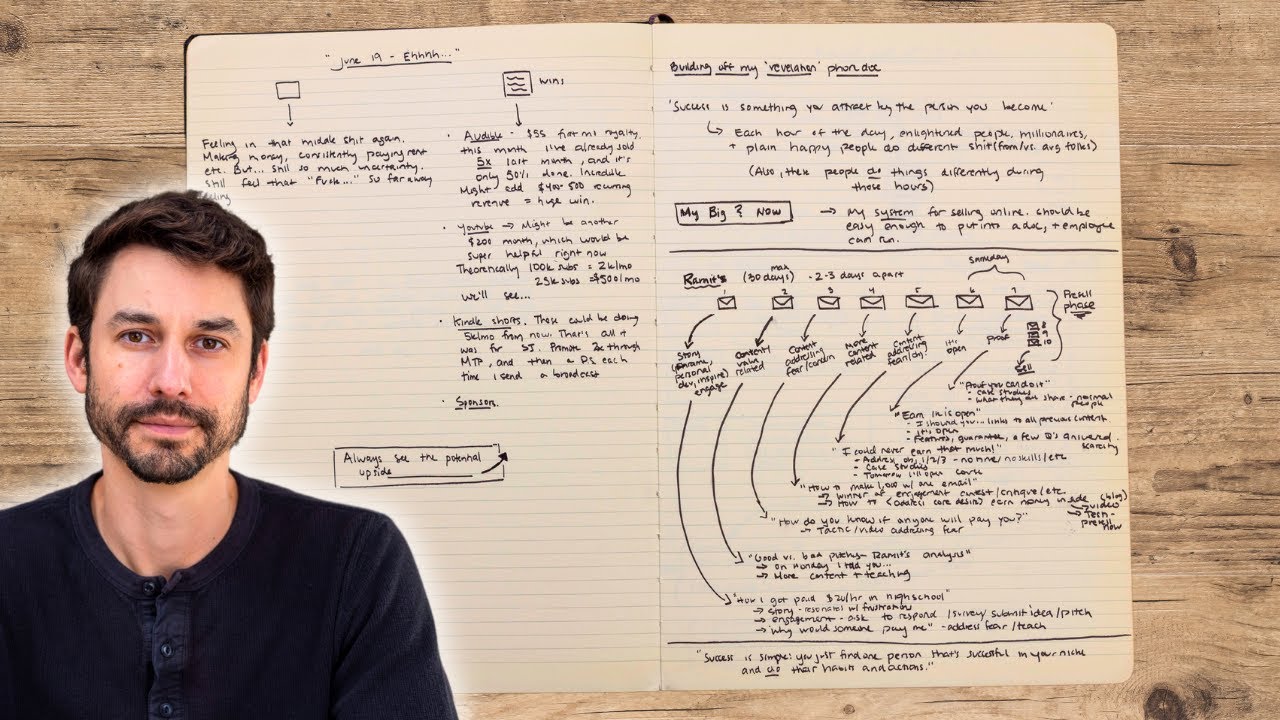 "June 19 - Ehhhh..."
Feeling in that middle shit again.
Making money, consistently paying rent
etc. But... still so much uncertainty.
Still feel that "Fuck..." so far away
wins
· Audible - $55 first mo royalty.
this month I've already sold
5x last month, and it's
only 50% done. Incredible
Might add $400-500 recurring
revenue = huge win.
· Youtube → Might be another
$200 month, which would be
super helpful right now
Theoretically 100k subs = 2k/mo
25k subs = $500/mo
we'll see...
· Kindle shorts. These could be doing
5k/mo from now. That's all I
was for SJ. Promote 2x through
MTP, and then a P.S. each
time I send a broadcast
· Sponsors.
Always see the potential
upside
Building off my 'revelation' phone doc
'Success is something you attract by the person you become'
Each hour of the day, enlightened people, millionaires,
+ plain happy people do different shit (from/vs. avg folks)
(Also, these people do things differently during
those hours)
My Big ? Now
→ My system for selling online. should be
easy enough to put into a doc, + employee
can run.
Ramit's (30 days) max - 2-3 days apart
same day
1 2 3 4 5 6 7
Presell
phase
8 9 10
Sell
Story
personal
dev, inspire)
engage
Content/
main
related
Content
addressing
fear/
More
content
related
Content
addressing
fear/obj.
it's
open
proof
"Proof you can do it"
- case studies
- what they all share - normal
people
"Earn 1k is open"
- I showed you... links to all previous content
- it's open
- Features, guarantee, a few Q's answered.
scarcity
"I could never earn that much!"
- Address obj. 1/2/3 - no time/no skills/etc
- Case studies
- Tomorrow I'll open course
"How to make 1,000 w/ one email"
→ winner of engagement contest/critique/etc.
→ How to <address core desire> earn money in side (blog)
→ video
→ Tech-
presell
now
"How do you know if anyone will pay you?"
→ Tactic/video addressing fear
"Good vs. bad pitches - Ramit's analysis"
→ On Monday I told you...
→ More content + teaching
"How I got paid $20/hr in high school"
→ Story - resonates w/ frustration
→ engagement - ask to respond /survey/submit idea/pitch
→ "why would someone pay me" - address fear/teach
"Success is simple: you just find one person that's successful in your niche
and do their habits and actions."